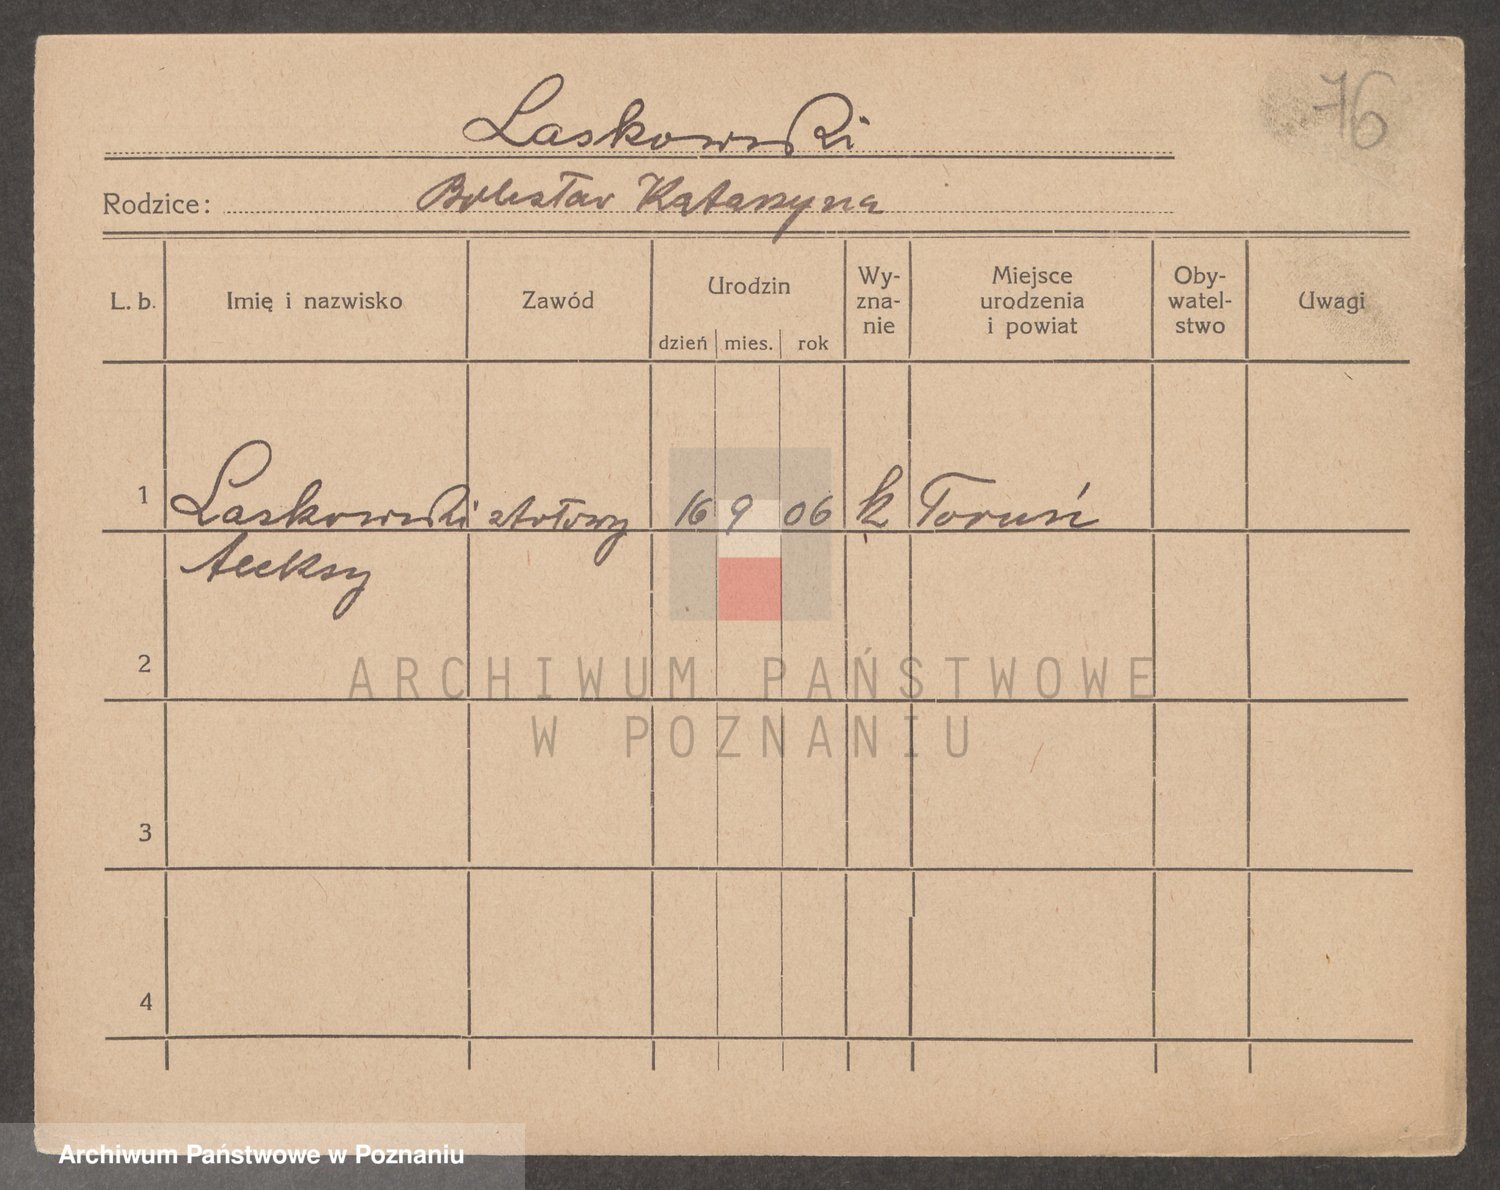 76
Laskowski
Rodzice: Bolesław Katarzyna
L. b. Imię i nazwisko Zawód Urodzin dzień mies. rok Wy-zna-nie Miejsce urodzenia i powiat Oby-watel-stwo Uwagi
1 Laskowski stołowy 16 9 06 k Toruń
Aleksy
2
ARCHIWUM PAŃSTWOWE
W POZNANIU
3
4
Archiwum Państwowe w Poznaniu